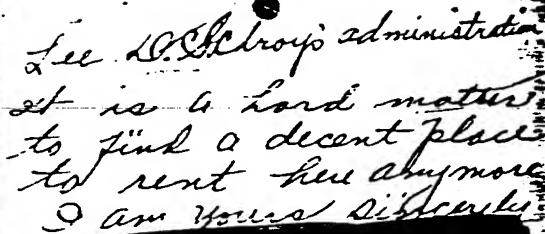 Lee O. administration
it is a hard matter
to find a decent place
to rent here anymore
I am yours sincerely